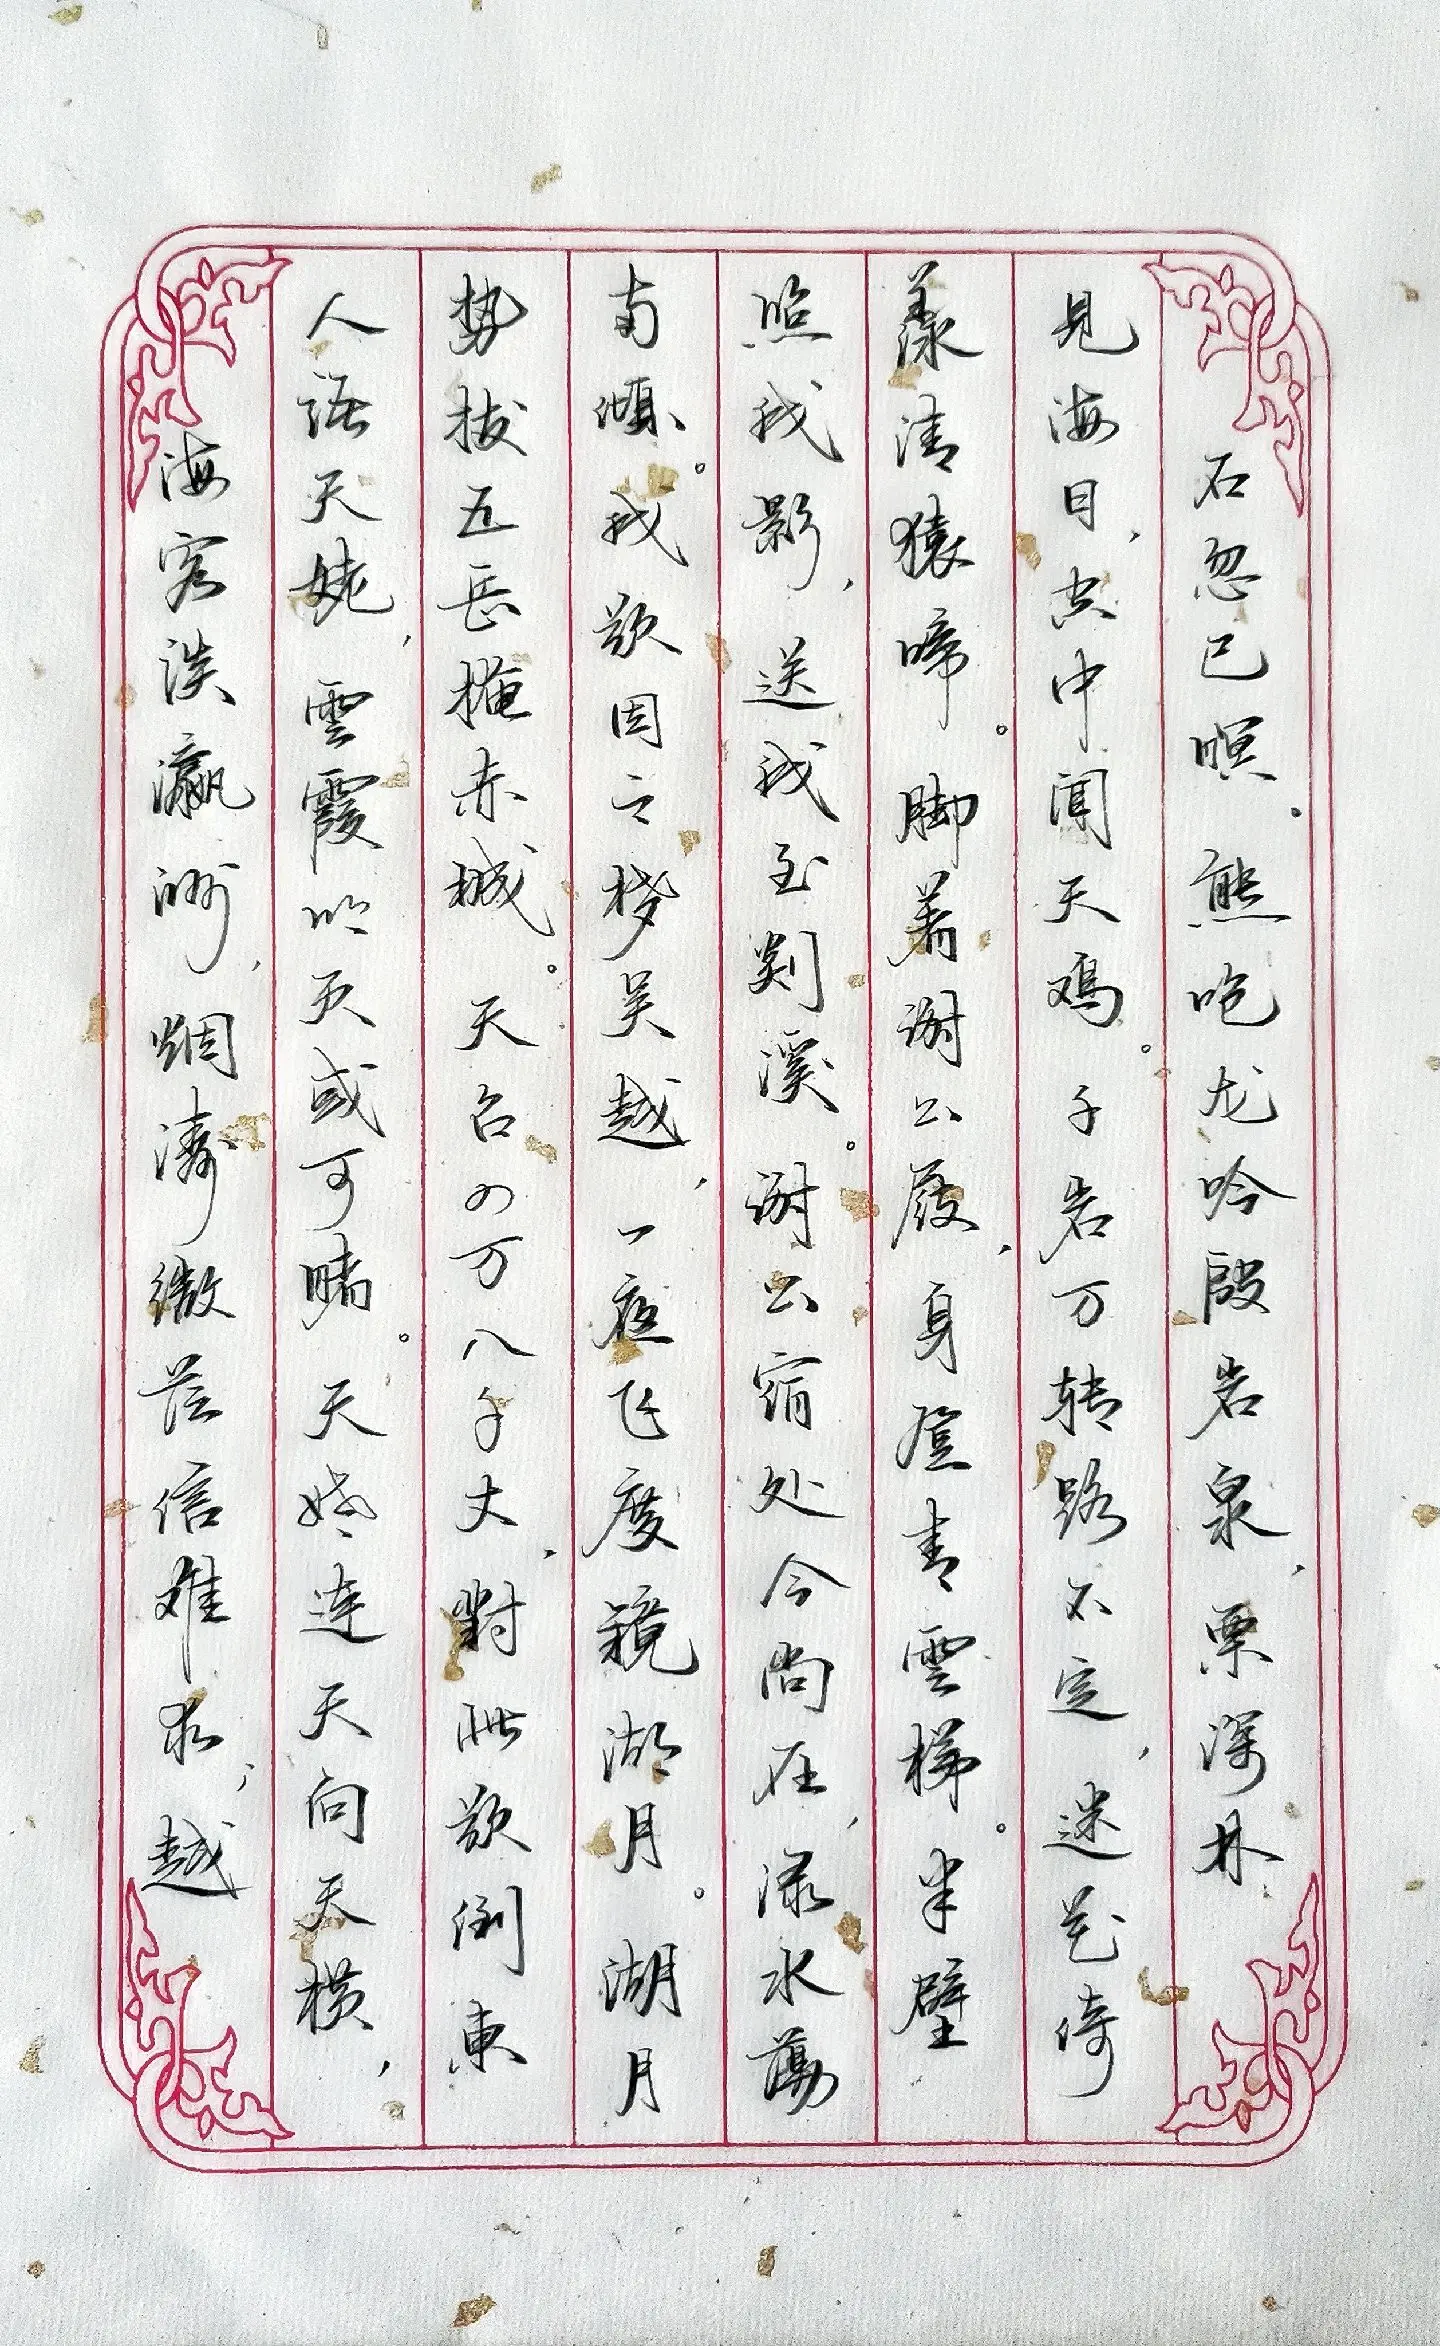 海客谈瀛洲，烟涛微茫信难求；越
人语天姥，雲霞明灭或可睹。天姥连天向天横，
势拔五岳掩赤城。天台四万八千丈，對此欲倒東
南倾。我欲因之梦吴越，一夜飞度镜湖月。湖月
照我影，送我至剡溪。谢公宿处今尚在，渌水蕩
漾清猿啼。脚着谢公屐，身登青雲梯。半壁
见海日，空中闻天鸡。千岩万转路不定，迷花倚
石忽已暝。熊咆龙吟殷岩泉，栗深林